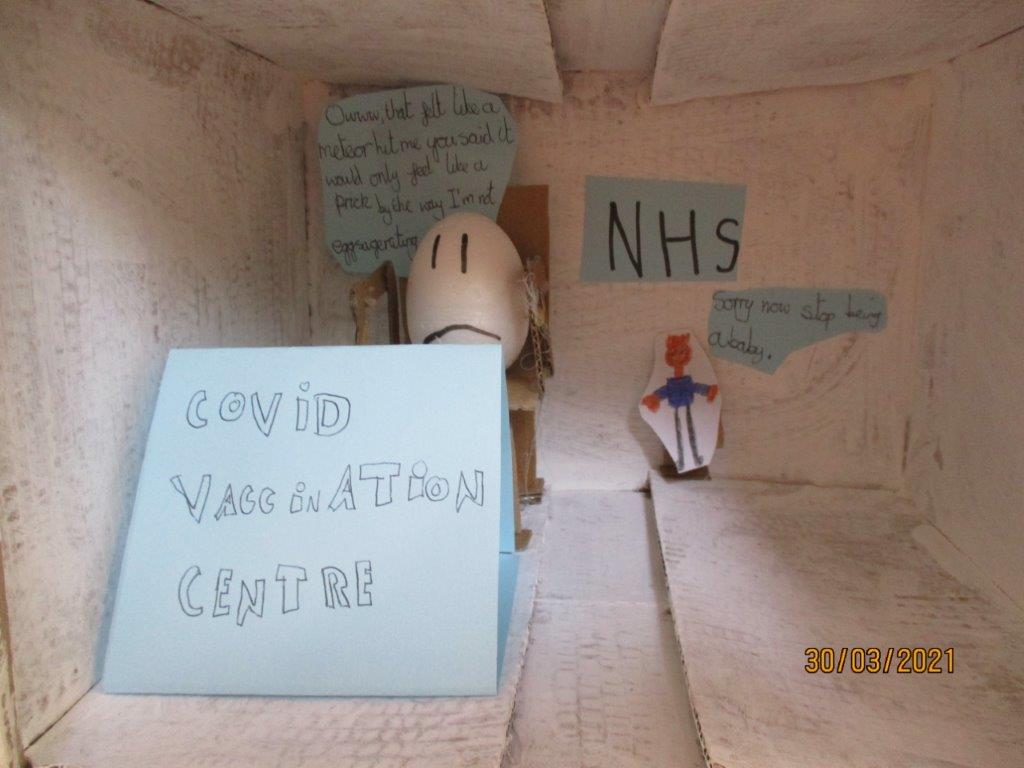 Owww, that felt like a
meteor hit me you said it
would only feel like a
prick by the way I'm not
eggsagerating
NHS
Sorry now stop being
a baby.
COVID
VACCINATION
CENTRE
30/03/2021